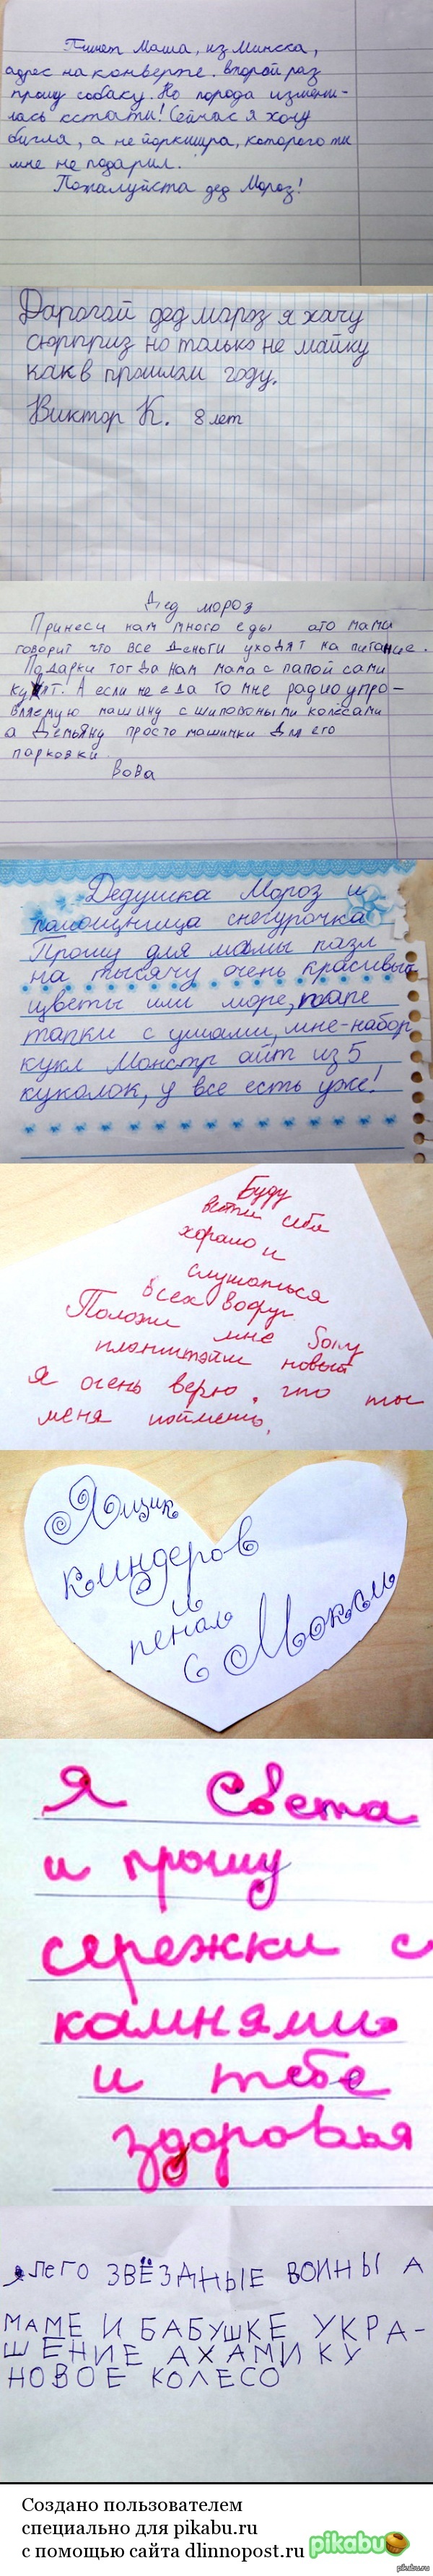 Пишет Маша, из Минска,
адрес на конверте. Второй раз
прошу собаку. Но порода измени-
лась кстати! Сейчас я хочу
бигля, а не йоркшира, которого ты
мне не подарил.
Пожалуйста дед Мороз!
Дарогой дед мороз я хачу
сюрприз но только не майку
как в прошлом году.
Виктор К. 8 лет
Дед мороз
Принеси нам много еды ато мама
говорит что все деньги уходят на питание.
Подарки тогда нам мама с папой сами
купят! А если не еда то мне радиоупро-
вляемую машину с шиповоными колёсами
а Демьяну просто машинки для его
парковки
Вова
Дедушка Мороз и
помощница снегурочка
Прошу для мамы пазл
на тысячу очень красивый
цветы или море, папе
тапки с ушами, мне-набор
кукл Монстр айт из 5
куколок, у все есть уже!
Буду
вести себя
хорошо и
слушаться
всех вофруг
Положи мне
планшэтик новый
Я очень верю, что ты
меня поймешь,
Ящик
киндеров
и
пенал
с Мокси
Я Света
и прошу
сережки с
камнями
и тебе
здоровья
лего ЗВЁЗДНЫЕ ВОИНЫ А
МАМЕ И БАБУШКЕ УКРА-
ШЕНИЕ А ХАМИКУ
НОВОЕ КОЛЕСО
Создано пользователем
специально для pikabu.ru
с помощью сайта dlinnopost.ru pikabu
pikabu.ru